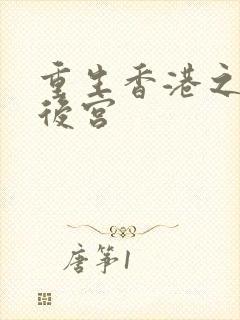 重生香港之
後宮
唐筝1